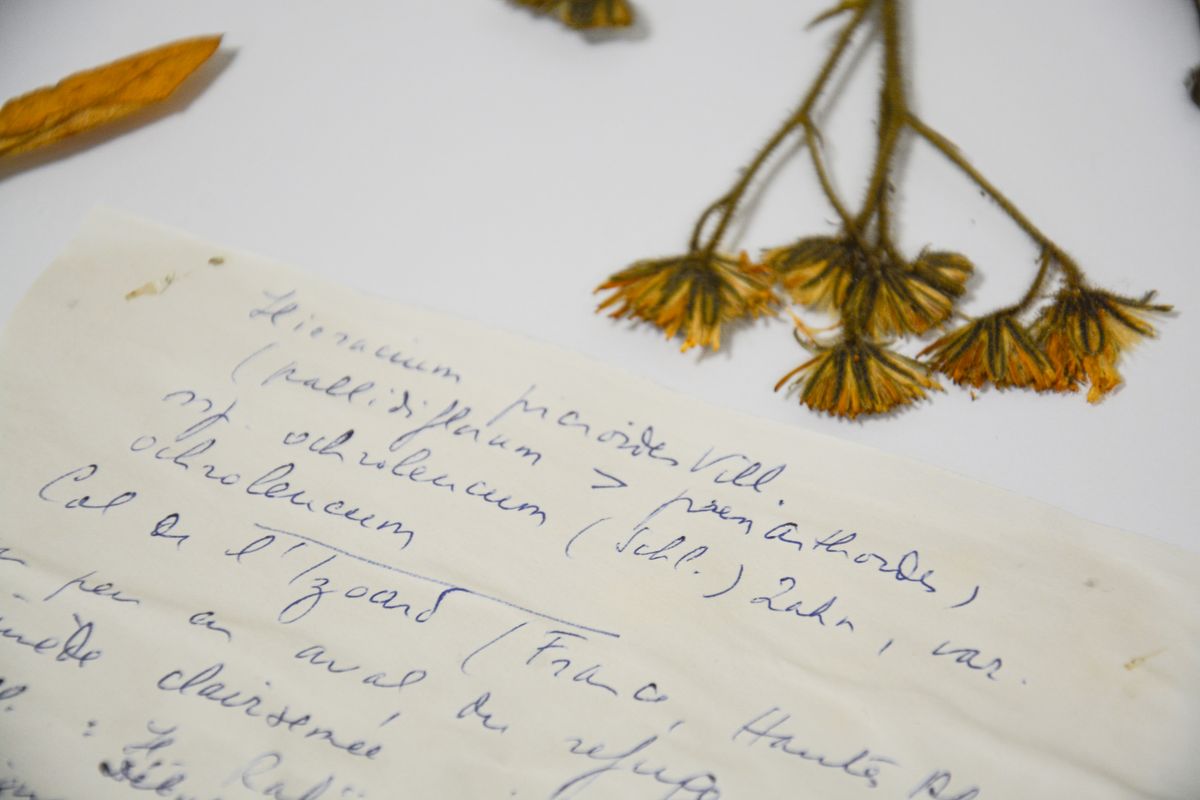 Hieracium picroides Vill.
(pallidiflorum > prenanthoides)
ssp. ochroleucum (Schl.) Zahn, var.
ochroleucum
Col de l'Izoard (France, Hautes Al
peu en aval du refuge
clairsemée